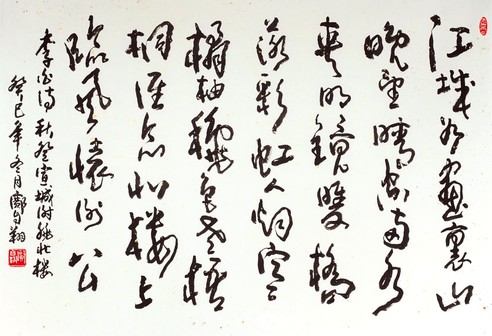 江城如畫裏山
晚望晴空兩水
夾明鏡雙橋
落彩虹人烟寒
橘柚秋色老梧
桐誰念北樓上
臨風懷謝公
李白詩秋登宣城謝朓北樓
癸巳年冬月鄭